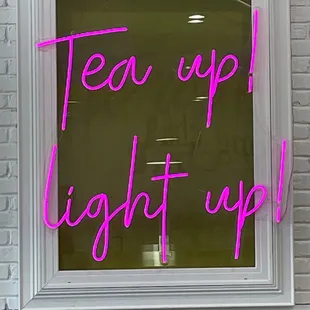 Tea up!
light up!